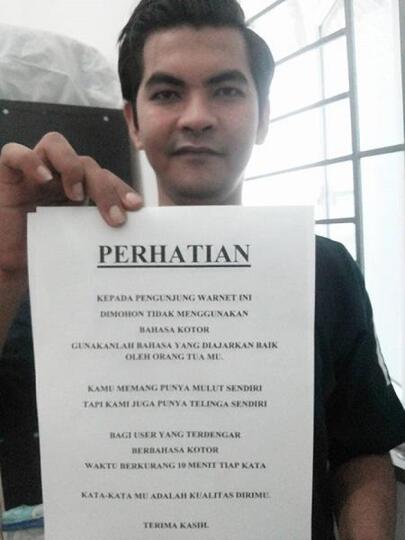 PERHATIAN
KEPADA PENGUNJUNG WARNET INI
DIMOHON TIDAK MENGGUNAKAN
BAHASA KOTOR
GUNAKANLAH BAHASA YANG DIAJARKAN BAIK
OLEH ORANG TUA MU.
KAMU MEMANG PUNYA MULUT SENDIRI
TAPI KAMI JUGA PUNYA TELINGA SENDIRI
BAGI USER YANG TERDENGAR
BERBAHASA KOTOR
WAKTU BERKURANG 10 MENIT TIAP KATA
KATA-KATA MU ADALAH KUALITAS DIRIMU.
TERIMA KASIH.